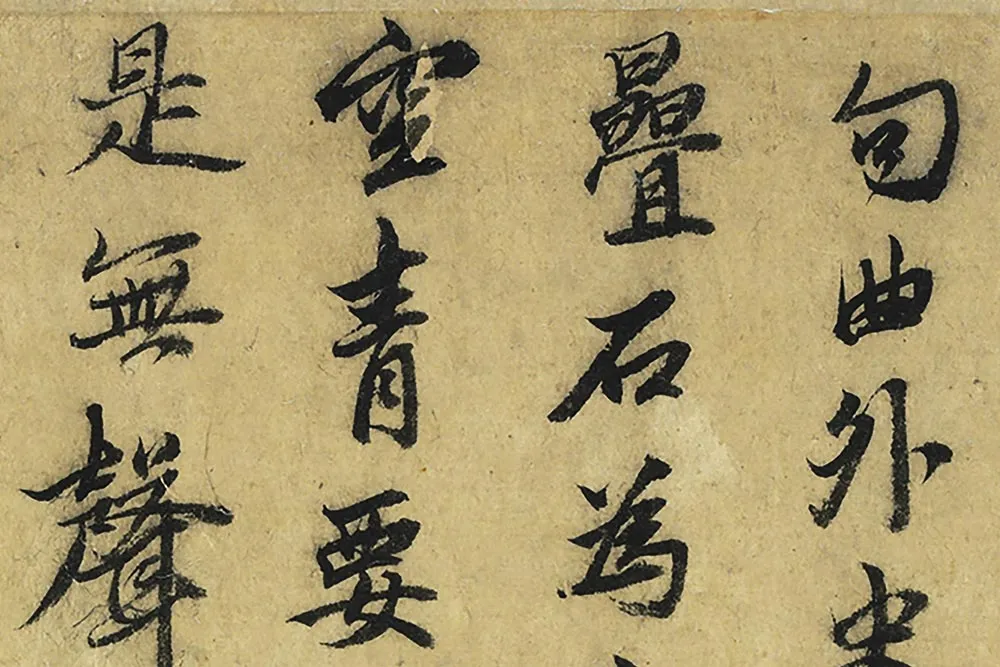 句曲外史
疊石為
空青要
是無聲